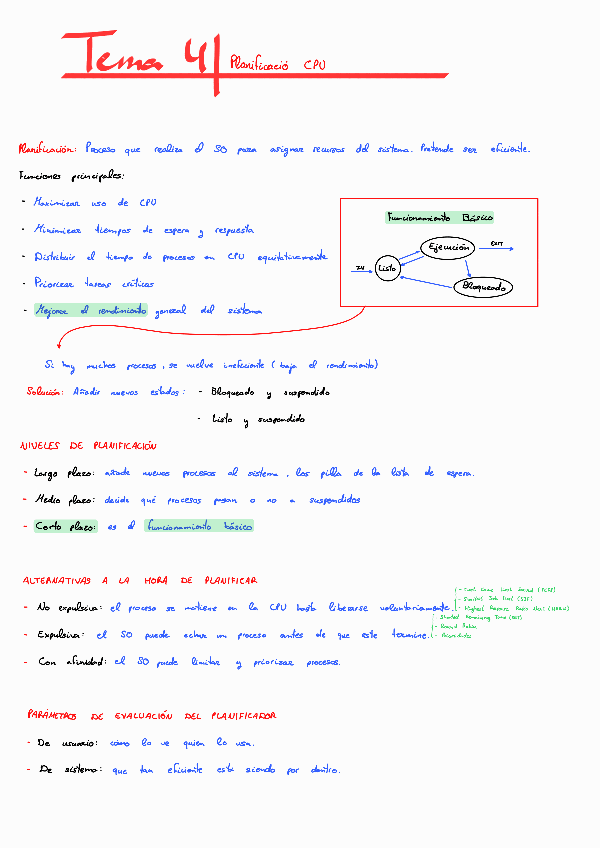 Tema 4 | Planificació CPU
Planificación: Proceso que realiza el SO para asignar recursos del sistema. Pretende ser eficiente.
Funciones principales:
- Maximizar uso de CPU
- Minimizar tiempos de espera y respuesta
- Distribuir el tiempo de procesos en CPU equitativamente
- Priorizar tareas críticas
- Mejorar el rendimiento general del sistema
Funcionamiento Básico
Ejecución
EXIT
IN
Listo
Bloqueado
Si hay muchos procesos, se vuelve ineficiente (baja el rendimiento)
Solución: Añadir nuevos estados: - Bloqueado y suspendido
- Listo y suspendido
NIVELES DE PLANIFICACIÓN
- Largo plazo: añade nuevos procesos al sistema, los pilla de la lista de espera.
- Medio plazo: decide qué procesos pasan o no a suspendidos
- Corto plazo: es el funcionamiento básico
ALTERNATIVAS A LA HORA DE PLANIFICAR
- First Come First Served (FCFS)
- Shortest Job First (SJF)
- No expulsiva: el proceso se mantiene en la CPU hasta liberarse voluntariamente. - Highest Response Ratio Next (HRRN)
- Shortest Remaining Time (SRT)
- Round Robin
- Expulsiva: el SO puede echar un proceso antes de que este termine. - Prioridades
- Con afinidad: el SO puede limitar y priorizar procesos.
PARÁMETROS DE EVALUACIÓN DEL PLANIFICADOR
- De usuario: cómo lo ve quien lo usa.
- De sistema: que tan eficiente está siendo por dentro.